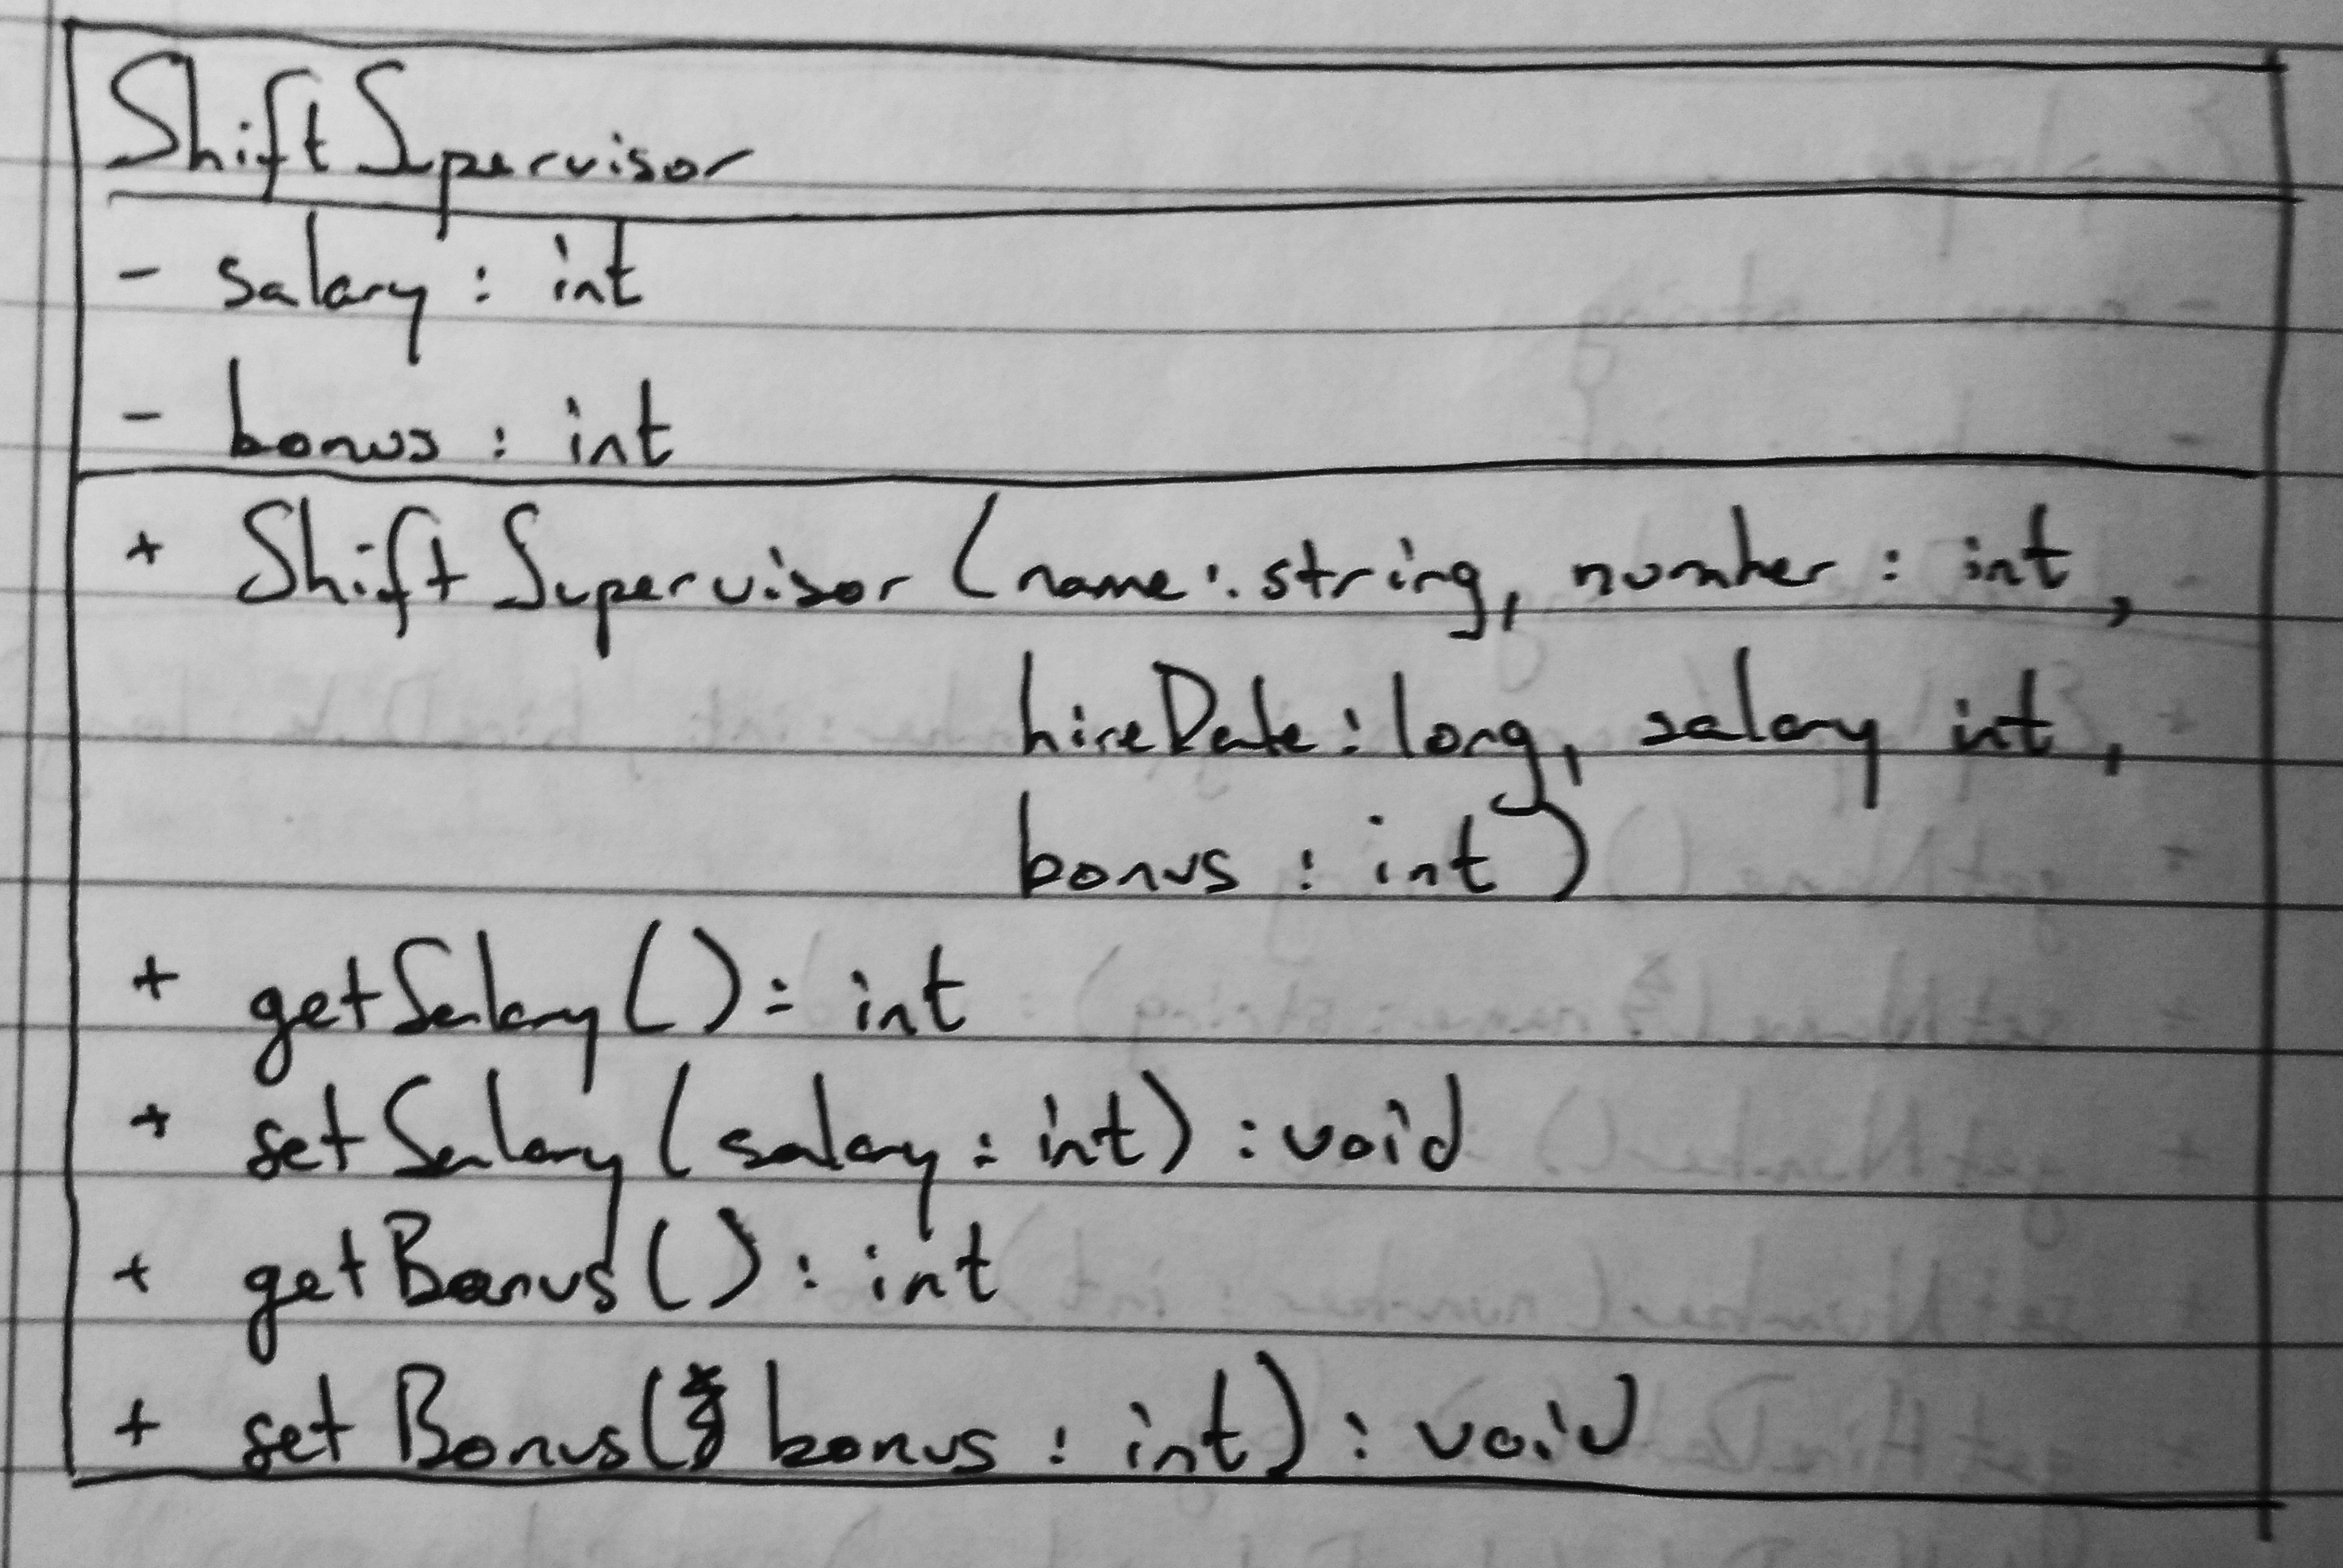 ShiftSupervisor
- salary : int
- bonus : int
+ ShiftSupervisor (name : string, number : int,
hireDate : long, salary int,
bonus : int)
+ getSalary() : int
+ setSalary (salary : int) : void
+ getBonus() : int
+ setBonus( bonus : int) : void